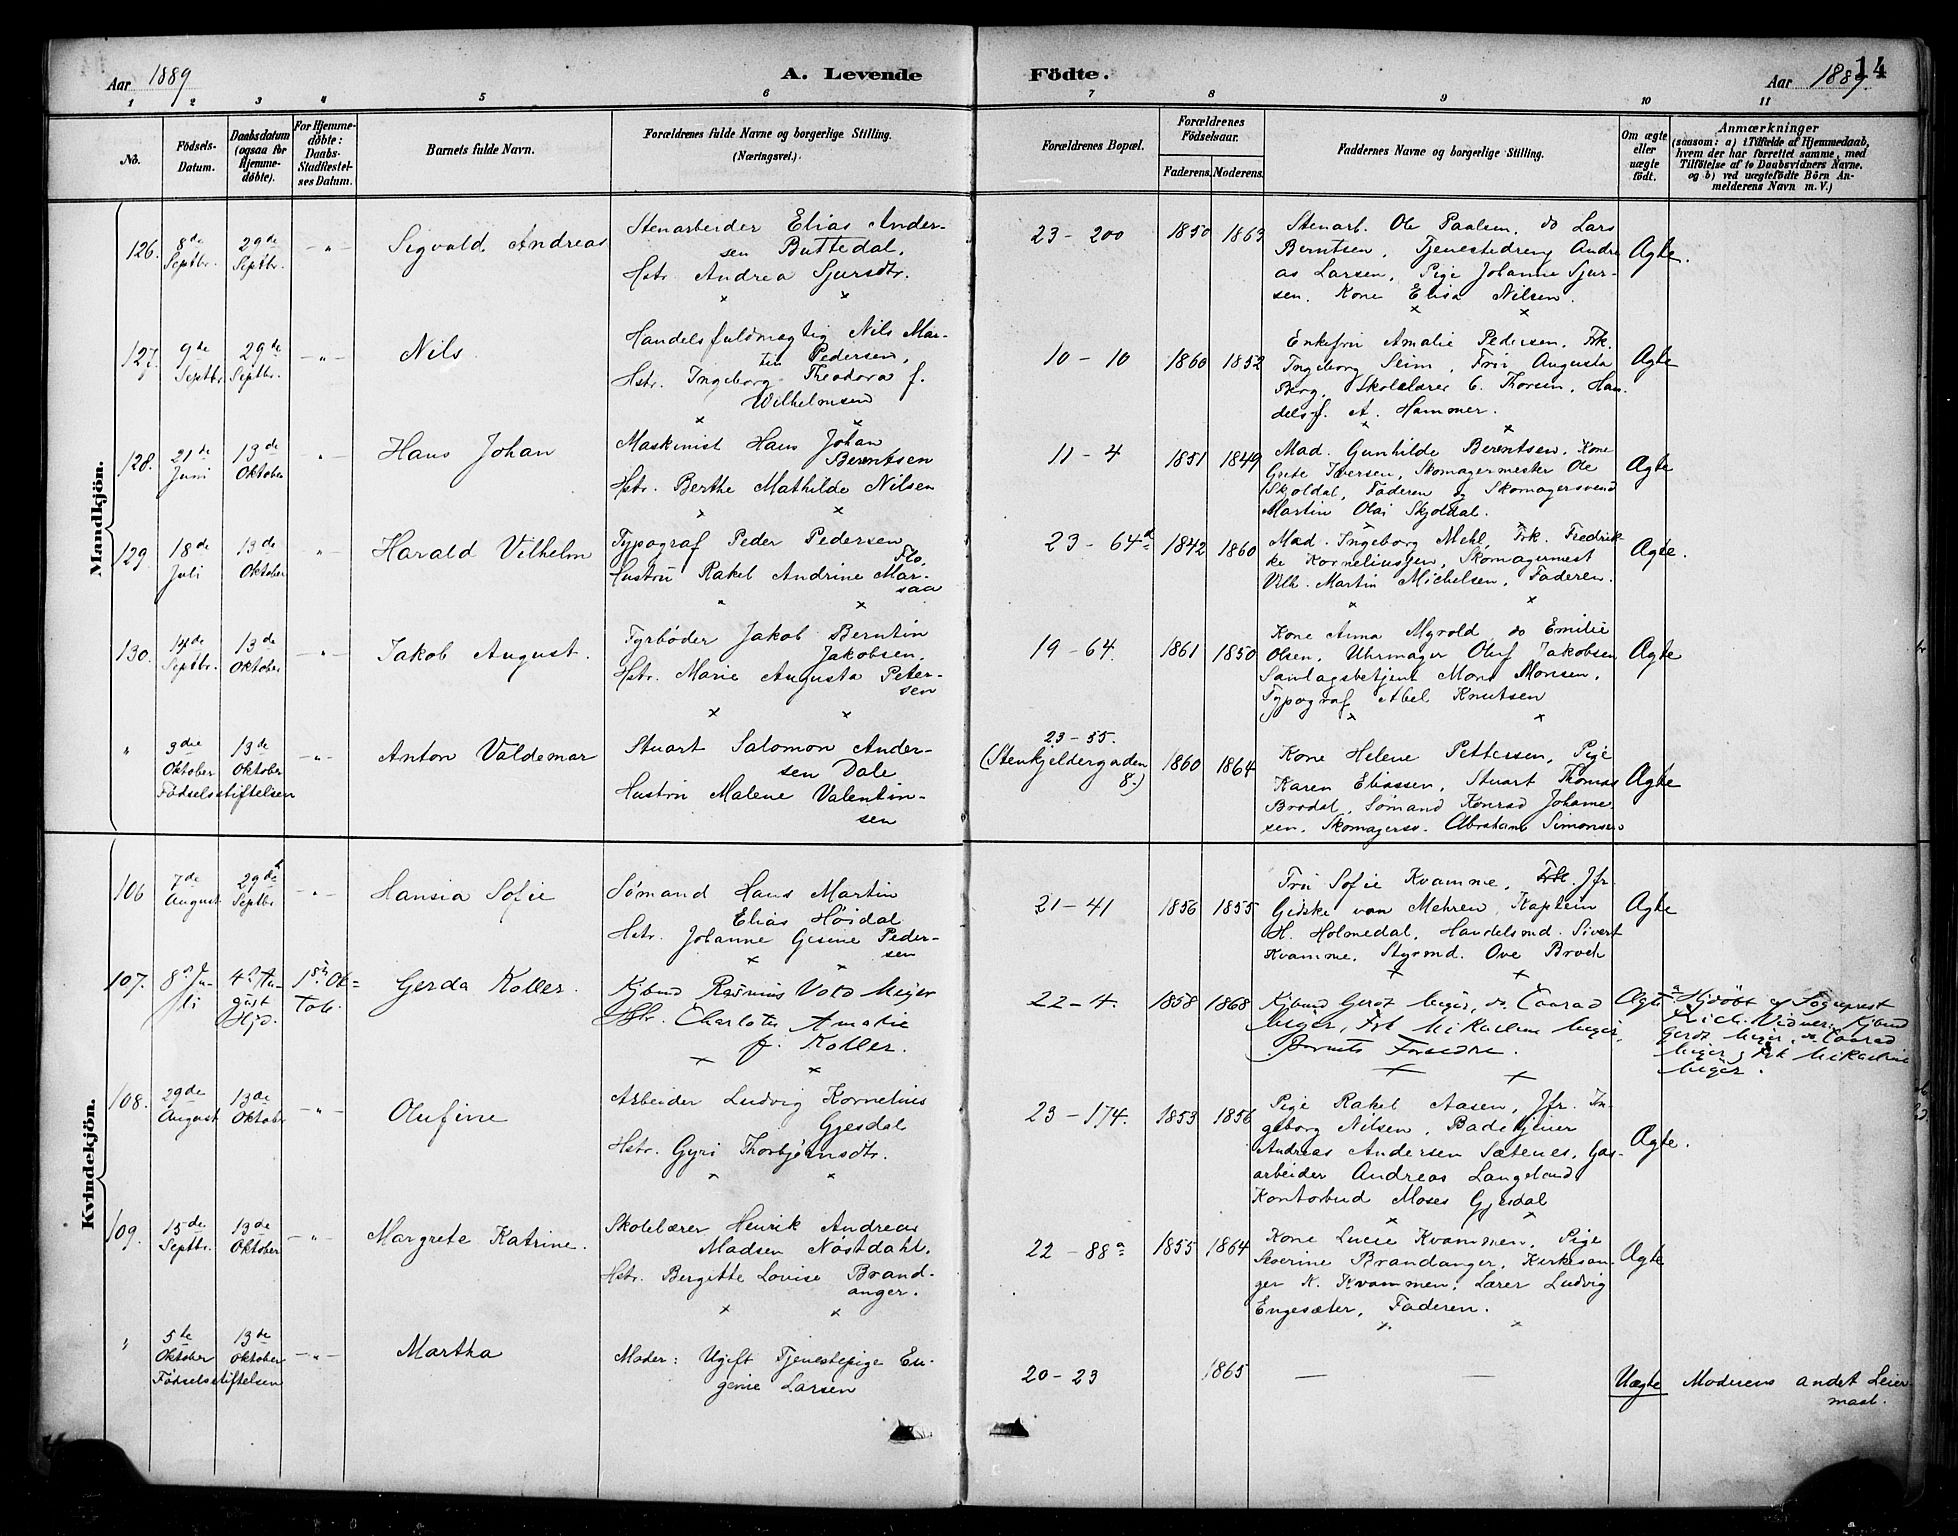 Aar 1889
A. Levende
Födte.
Aar 1889
14
1 2 3 4 5 6 7 8 9 10 11
No.
Födsels-
Datum.
Daabsdatum
(ogsaa for
Hjemme-
døbte).
For Hjemme-
døbte:
Daabs-
Stadfæstel-
ses Datum.
Barnets fulde Navn.
Forældrenes fulde Navne og borgerlige Stilling.
(Næringsvei.)
Forældrenes Bopæl.
Forældrenes
Födselsaar.
Faderens. Moderens.
Faddernes Navne og borgerlige Stilling.
Om ægte
eller
uægte
födt.
Anmærkninger
(saasom: a) i Tilfælde af Hjemmedaab,
hvem der har forrettet samme, med
Tilföielse af to Daabsvidners Navne.
og b) ved uægtefödte Börn An-
melderens Navn m. V.)
Mandkjön.
126.
8de
Septbr.
29de
Septbr.
Sigvald Andreas
Stenarbeider Elias Ander-
sen Buttedal,
Hstr. Andrea Sjursdtr.
23 - 200
1850
1863
Stenarb. Ole Paalsen, do Lars
Berntsen, Tjenestedreng Andre
as Larsen, Pige Johanne Sjur-
sen. Kone Elisa Nilsen.
Ægte.
127.
9de
Septbr.
29de
Septbr.
Nils
Handelsfuldmægtig Nils Mar-
tin Pedersen,
Hstr. Ingeborg Theodora f.
Wilhelmsen
10 - 10
1860
1852
Enkefru Amalie Pedersen, Frk.
Ingeborg Seim, Fru Augusta
Berg, Skolelærer C. Thorsen, Han-
delsf. A. Hammer.
Ægte
128.
21de
Juni
13de
Oktober
Hans Johan
Maskinist Hans Johan
Berentsen
Hstr. Berthe Mathilde Nilsen
11 - 4
1851
1849
Mad. Gunhilde Berentsen, Kone
Grete Iversen, Skomagermester Ole
Skoldal, Faderen og Skomagersvend
Martin Olai Skjoldal.
Ægte
129
18de
Juli
13de
Oktober
Harald Vilhelm
Typograf Peder Pedersen
Flo,
Hustru Rakel Andrine Mar-
saa
23 - 64a
1842
1860
Mad. Ingeborg Mehl, Frk. Fredrik
ke Korneliussen, Skomagermest
Vilh. Martin Michelsen, Faderen.
Ægte.
130.
14de
Septbr.
13de
Oktober
Jakob August.
Fyrbøder Jakob Berntin
Jakobsen,
Hstr. Marie Augusta Peter-
sen
19 - 64.
1861
1850
Kone Anna Myrold, do Emilie
Olsen, Uhrmager Oluf Jakobsen
Samlagsbetjent Mons Monsen,
Typograf Abel Knutsen
Ægte
"
3die
Oktober
13de
Oktober
Fødselsstiftelsen
Anton Valdemar
Stuart Salomon Ander-
sen Dale
Hustru Malene Valentin-
sen
23 - 55.
(Stenkjeldergaden
8.)
1860
1864
Kone Helene Pettersen, Pige
Karen Eliassen, Stuart Thomas
Brodal, Sømand Konrad Johanne-
sen, Skomagersv. Abraham Simonsen
Ægte
Kvindekjön.
106
7de
August
29de
Septbr.
Hansia Sofie
Sømand Hans Martin
Elias Høidal
Hstr. Johanne Gesine Peder-
sen
21 - 41
1856
1855
Fru Sofie Kvamme, Frk. Jfr.
Gidske van Mehren, Kaptein
H. Holmedal, Handelsmd. Sivert
Kvamme, Styrmd. Ove Broch
Ægte
107.
8de Ju-
li
4de Au-
gust
Hjd.
13de Ok-
tob.
Gerda Koller.
Kjbmd Rasmus Vold Meyer
Hstr. Charlotte Amalie
f. Koller.
22 - 4.
1858
1868
Kjbmd Gerdt Meyer, do Conrad
Meyer, Frk Mikaeline Meyer,
Barnets Forældre.
Ægte
Hjdøbt af Sogneprest
Vidner: Kjbmd
Gerdt Meyer, do Conrad
Meyer, Frk Mikaeline
Meyer.
108.
29de
August
13de
Oktober
Olufine
Arbeider Ludvig Kornelius
Gjesdal
Hstr. Gyri Thorbjørnsdtr.
23 - 174.
1853
1856
Pige Rakel Aasen, Jfr. In-
geborg Nilsen, Badetjener
Andreas Andersen Sætenes, Gas-
arbeider Andreas Langeland
Kontorbud Moses Gjesdal
Ægte.
109.
15de
Septbr.
13de
Oktober
Margrete Katrine.
Skolelærer Henrik Andreas
Madsen Nøstdahl,
Hstr. Bergitte Lovise Brand-
anger.
22 - 88a
1855
1864
Kone Lucie Kvammen, Pige
Severine Brandanger, Kirkesan-
ger K. Kvammen, Lærer Ludvig
Engesæter, Faderen.
Ægte
"
5te
Oktober
13de
Oktober
Fødselsstiftelsen
Martha
Moder: Ugift Tjenestepige Eu-
genie Larsen
20 - 23
1865
Uægte
Moderens andet Leier-
maal.